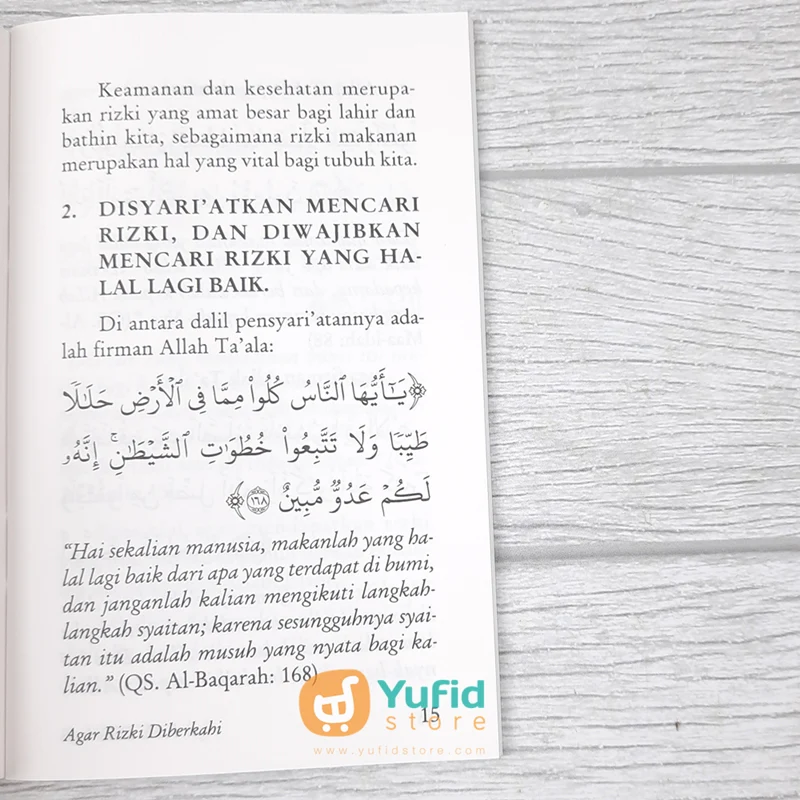 Keamanan dan kesehatan merupa-
kan rizki yang amat besar bagi lahir dan
bathin kita, sebagaimana rizki makanan
merupakan hal yang vital bagi tubuh kita.
2. DISYARI’ATKAN MENCARI
RIZKI, DAN DIWAJIBKAN
MENCARI RIZKI YANG HA-
LAL LAGI BAIK.
Di antara dalil pensyari’atannya ada-
lah firman Allah Ta’ala:
﴿يَـٰٓأَيُّهَا ٱلنَّاسُ كُلُوا۟ مِمَّا فِى ٱلْأَرْضِ حَلَـٰلًا
طَيِّبًا وَلَا تَتَّبِعُوا۟ خُطُوَٰتِ ٱلشَّيْطَـٰنِ ۚ إِنَّهُۥ
لَكُمْ عَدُوٌّ مُّبِينٌ ١٦٨﴾
“Hai sekalian manusia, makanlah yang ha-
lal lagi baik dari apa yang terdapat di bumi,
dan janganlah kalian mengikuti langkah-
langkah syaitan; karena sesungguhnya syai-
tan itu adalah musuh yang nyata bagi ka-
lian.” (QS. Al-Baqarah: 168)
Agar Rizki Diberkahi
15
Yufid
store
www.yufidstore.com